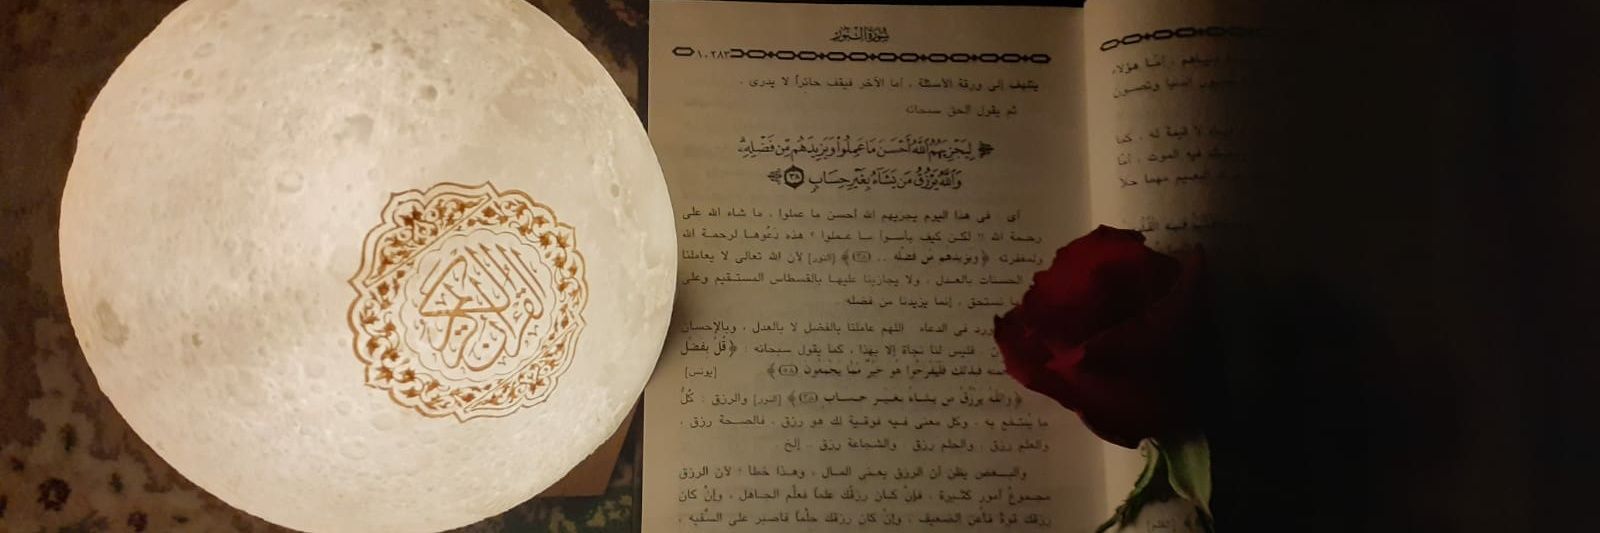 القرآن الكريم
سورة النور
١٠٢٨٣
يتلهف إلى ورقة الأسئلة ، أما الآخر فيقف حائراً لا يدرى .
ثم يقول الحق سبحانه
﴿ لِيَجْزِيَهُمُ اللَّهُ أَحْسَنَ مَا عَمِلُوا وَيَزِيدَهُم مِّن فَضْلِهِ
وَاللَّهُ يَرْزُقُ مَن يَشَاءُ بِغَيْرِ حِسَابٍ ٣٨ ﴾
أى فى هذا اليوم يجزيهم الله أحسن ما عملوا ، ما شاء الله على
رحمة الله !! لكن كيف بأسوأ ما عملوا ؟ هذه دَعُوها لرحمة الله
ولمغفرته ﴿ ويزيدهم من فضله .. (٣٨) ﴾ [النور] لأن الله تعالى لا يعاملنا
الحسنات بالعدل ، ولا يجازينا عليها بالقسطاس المستقيم وعلى
ما نستحق ، إنما يزيدنا من فضله .
ورد فى الدعاء اللهم عاملنا بالفضل لا بالعدل ، وبالإحسان
فليس لنا نجاة إلا بهذا ، كما يقول سبحانه : ﴿ قُلْ بفضل
فبذلك فليفرحوا هو خير مما يجمعون (٥٨) ﴾ [يونس]
﴿ والله يرزق من يشاء بغير حساب (٣٨) ﴾ [النور] والرزق : كُلُّ
ما يُنتفع به ، وكل معنى فيه فوقية لك هو رزق ، فالصحة رزق ،
والعلم رزق ، والحلم رزق والشجاعة رزق .. إلخ
والبعض يظن أن الرزق يعنى المال ، وهذا خطأ ؛ لأن الرزق
مجموع أمور كثيرة ، فإنْ كان رزقك علماً فعلِّم الجاهل ، وإنْ كان
رزقك قوة فأعن الضعيف ، وإنْ كان رزقك حلْماً فاصبر على السَّفيه ،
أمّا هؤلاء
الدنيا وتصون
لا قيمة له ، كما
فيه الموت ، أمّا
مهما حلا